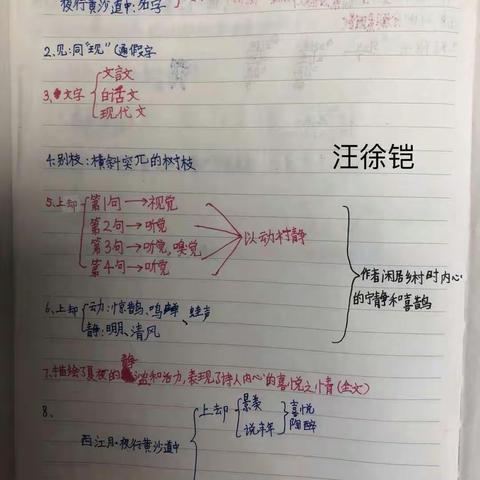 夜行黄沙道中:名字
2、见:同"现"(通假字
3、文字
文言文
白话文
现代文
4、别枝:横斜突兀的树枝
汪徐铠
5、上却
第1句→视觉
第2句→听觉
第3句→听觉,嗅觉
第4句→听觉
以动衬静
作者闲居乡村时内心
的宁静和喜鹊
6、上却
动:惊鹊、鸣蝉、蛙声
静:明月、清风
7、描绘了夏夜的静谧和活力,表现了诗人内心的喜悦之情(全文)
8、
西江月·夜行黄沙道中
上却
景美
说丰年
喜悦
陶醉